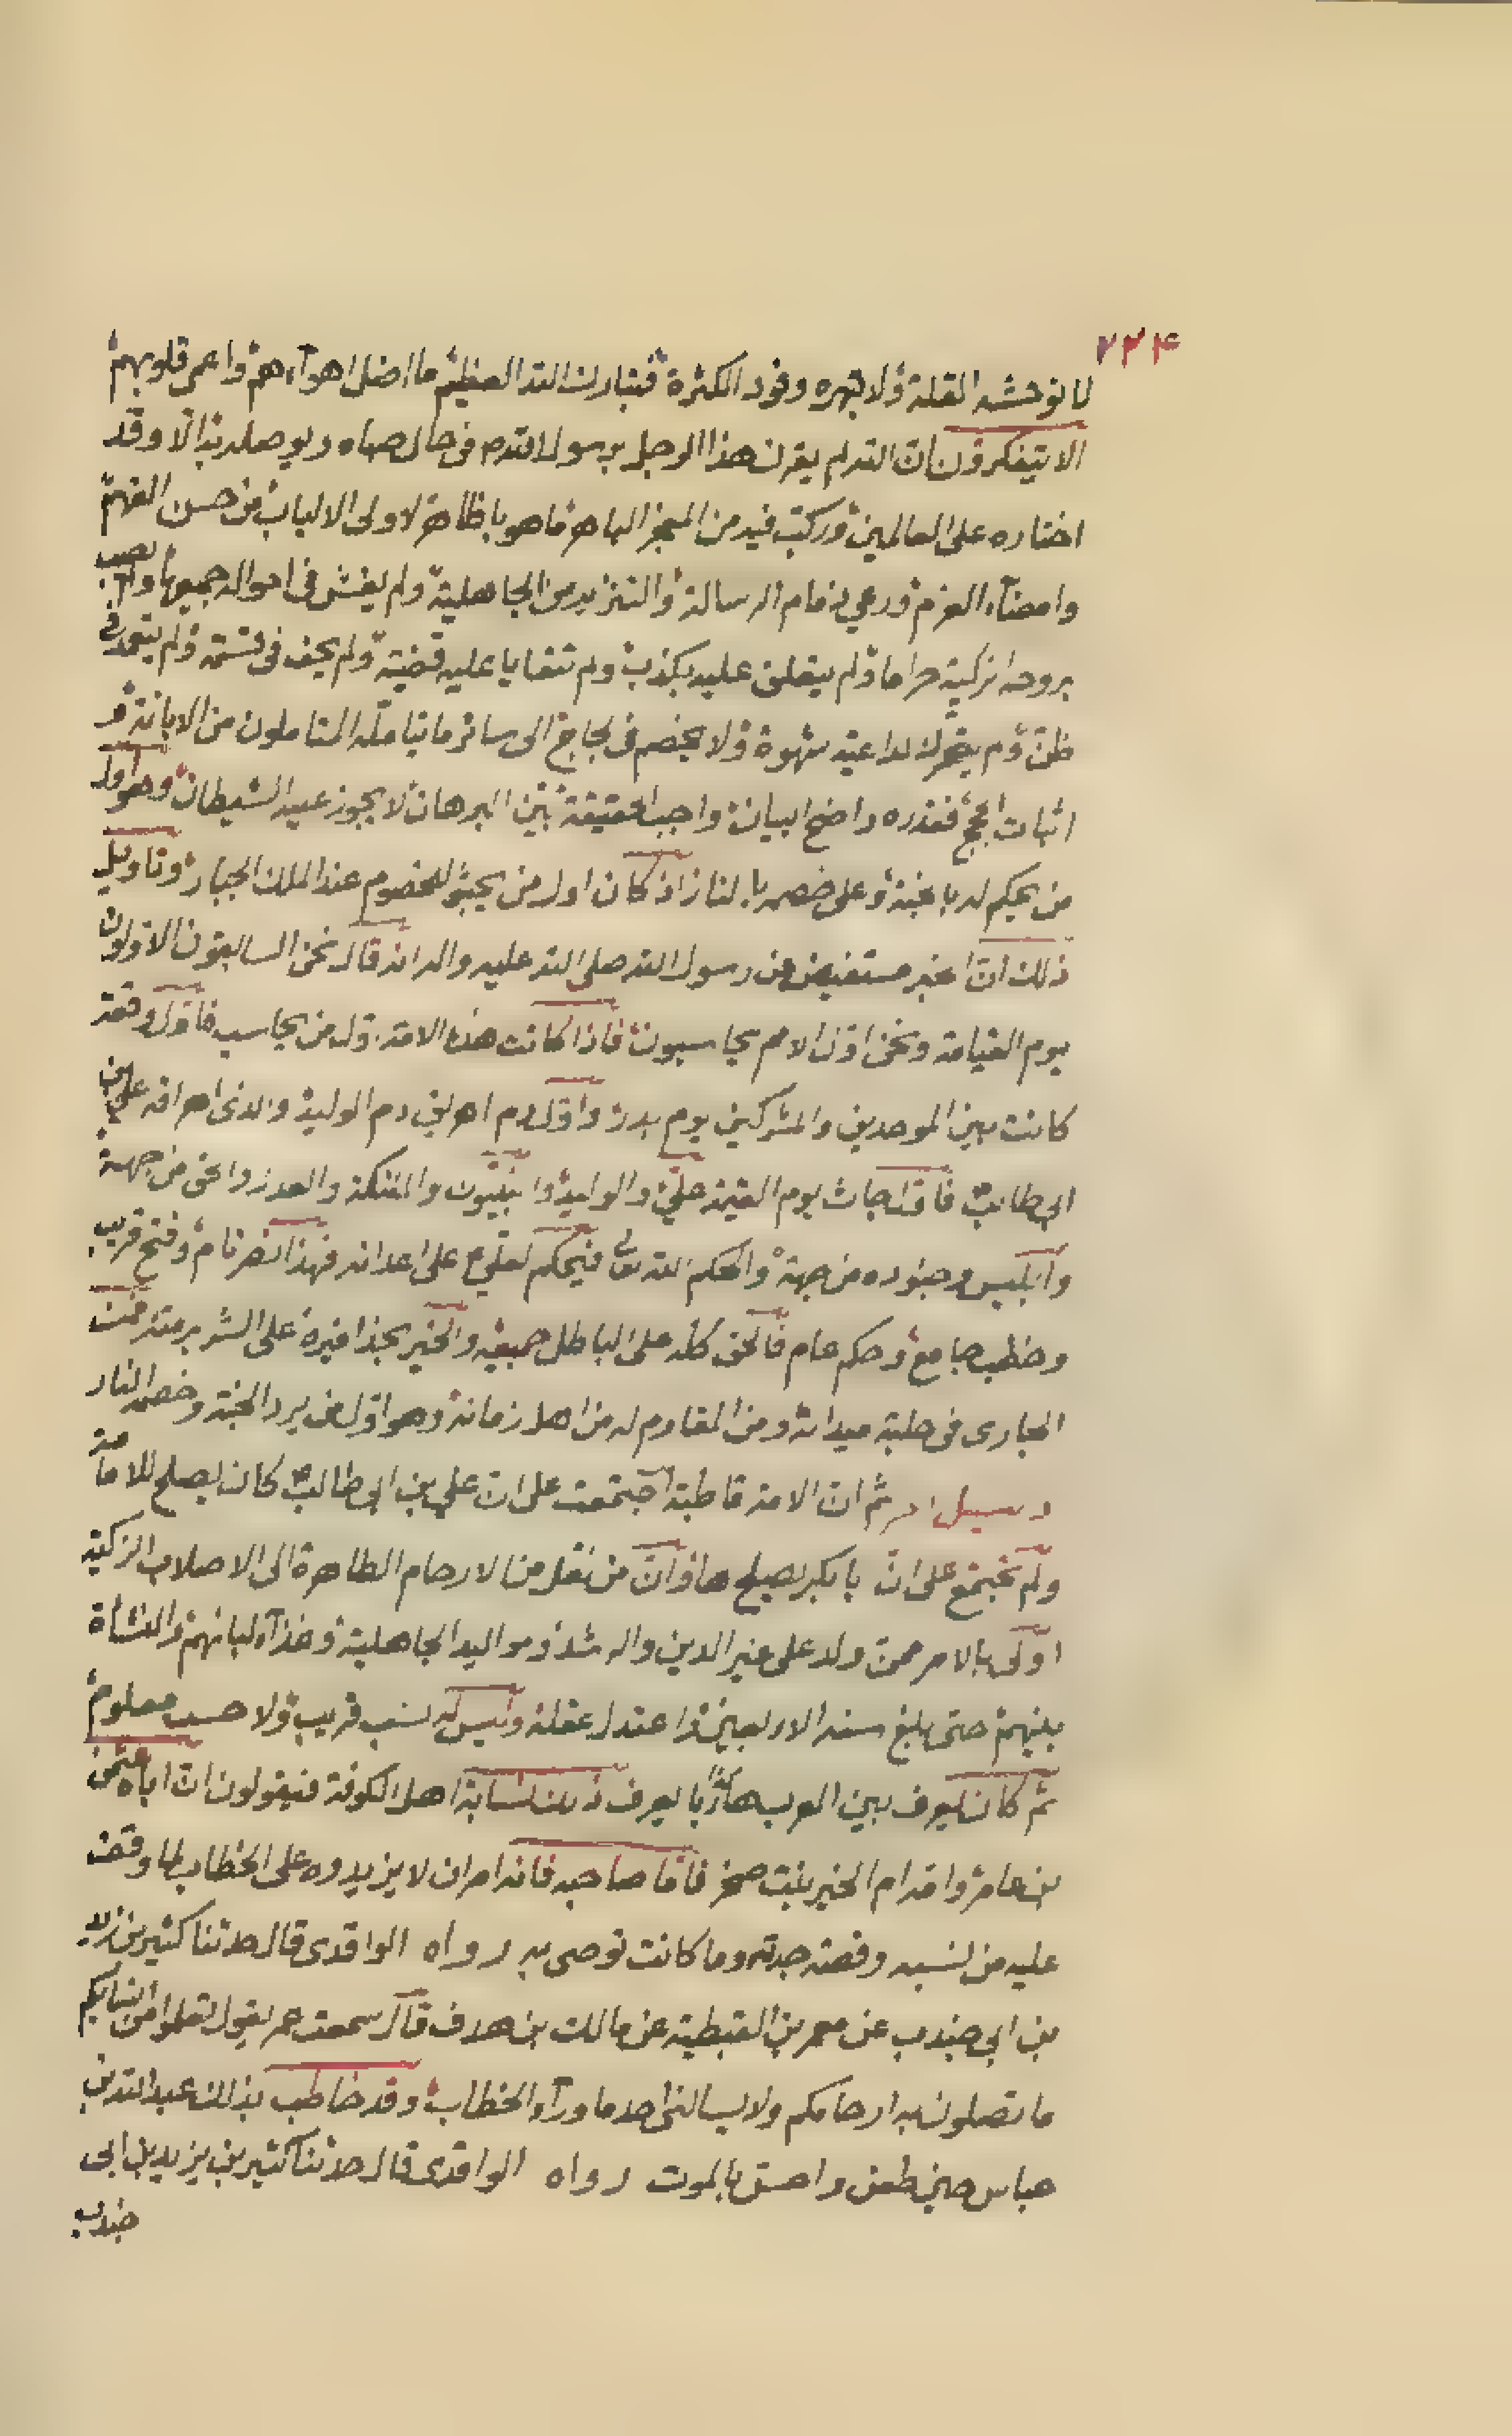 ٢٣٤
لا توحشه القلة ولا تبهره وفود الكثرة فتبارك الله العظيم ما اضل اهوآءهم واعمى قلوبهم
الا يتفكرون ان الله لم يقرن هذا الرجل برسول الله ص فى حال صباه ويوصله به الا وقد
اختاره على العالمين وركب فيه من المعجز الباهر ما هو باظاهر لاولى الالباب من حسن الفهم
وامضآء العزم ورعى ذمام الرسالة والتنزيه من الجاهلية ولم يفتش فى احواله جميعها ولم يصب
بروحه الزكية حراما ولم يتعلق عليه بكذب ولم تتغايا عليه قضية ولم يحف فى قسمة ولم يتعد فى
ظن ولم يتحرك لداعية شهوة ولا يخصم فى لجاج الى سائر ما يتامله المتاملون من الابانة و
اثبات الحجج فعذره واضح البيان واجب الحقيقة بين البرهان لا يجوز عبيد الشيطان وهو اول
من يحكم له بالجنة وعلى خصمه بالنار اذ كان اول من يجثو للخصوم عند الملك الجبار وتاويل
ذلك ان الخبر مستفيض عن رسول الله صلى الله عليه واله انه قال نحن السابقون الاولون
يوم القيامة ونحن اول الامم يحاسبون فاذا كانت هذه الامة اول من يحاسب فاول وقعة
كانت بين الموحدين والمشركين يوم بدر واول دم اهريق دم الوليد والذى اهراقه على بن
ابى طالب فاذا جاث يوم القيمة على والوليد والنبيون والملئكة والعدل والحق من جهة
وابليس وجنوده من جهة والحكم الله تعالى فيحكم لعلى ع على اعدائه فهذا نصر تام وفتح قريب
وخطب جامع وحكم عام فالحق كله على الباطل جميعه والخير بحذافيره على الشر برمته فمن
المجارى فى حلبة ميدانه ومن المقاوم له من اهل زمانه وهو اول من يرد الجنة وخصمه النار
ثم ان الامة قاطبة اجتمعت على ان على بن ابى طالب كان يصلح للامامة
ولم تجتمع على ان ابا بكر يصلح لها وان من نقل من الارحام الطاهرة الى الاصلاب الزكية
اولى بالامر ممن ولد على غير الدين والرشد ومواليد الجاهلية وغذآء لبانهم والنشأة
بينهم حتى بلغ سنه الاربعين واعتدل عقله وليس له نسب قريب ولا حسب معلوم
ثم كان يعرف بين العرب يعرف ذلك نسابة اهل الكوفة فيقولون ان اباه عثمن
بن عامر وامه ام الخير بنت صخر فاما صاحبه فانه امر ان لا يزيدوه على الخطاب لما وقف
عليه من نسبه وقصة جدته وما كانت توصى به رواه الواقدى قال حدثنا كثير بن زيد
بن ابى جندب عن معمر بن القبطية عن مالك بن هدف قال سمعت عمر يقول تعلموا من انسابكم
ما تصلون به ارحامكم ولا يسالنى احد ما ورآء الخطاب وقد خاطب بذلك عبد الله بن
عباس حين طعن واحس بالموت رواه الواقدى قال حدثنا كثير بن يزيد بن ابى
جندب